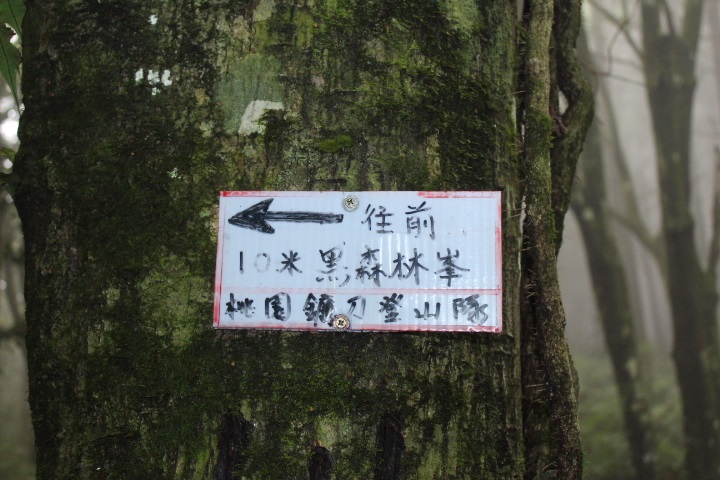 往前
10米黑森林峯
桃園鐮刀登山隊